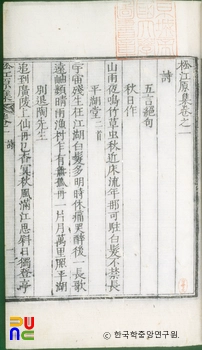 松江原集卷之一
詩
五言絶句
秋日作
山雨夜鳴竹草虫秋近床流年那可駐白髮不禁長
平湖堂二首
宇宙殘生在江湖白髮多明時休痛哭醉後一長歌
遠岫頻晴雨漁村乍有無孤舟一片月萬里照平湖
別退陶先生
追到廣陵上仙舟已杳冥秋風滿江思斜日獨登亭
松江原集卷之一 詩
한국학중앙연구원.